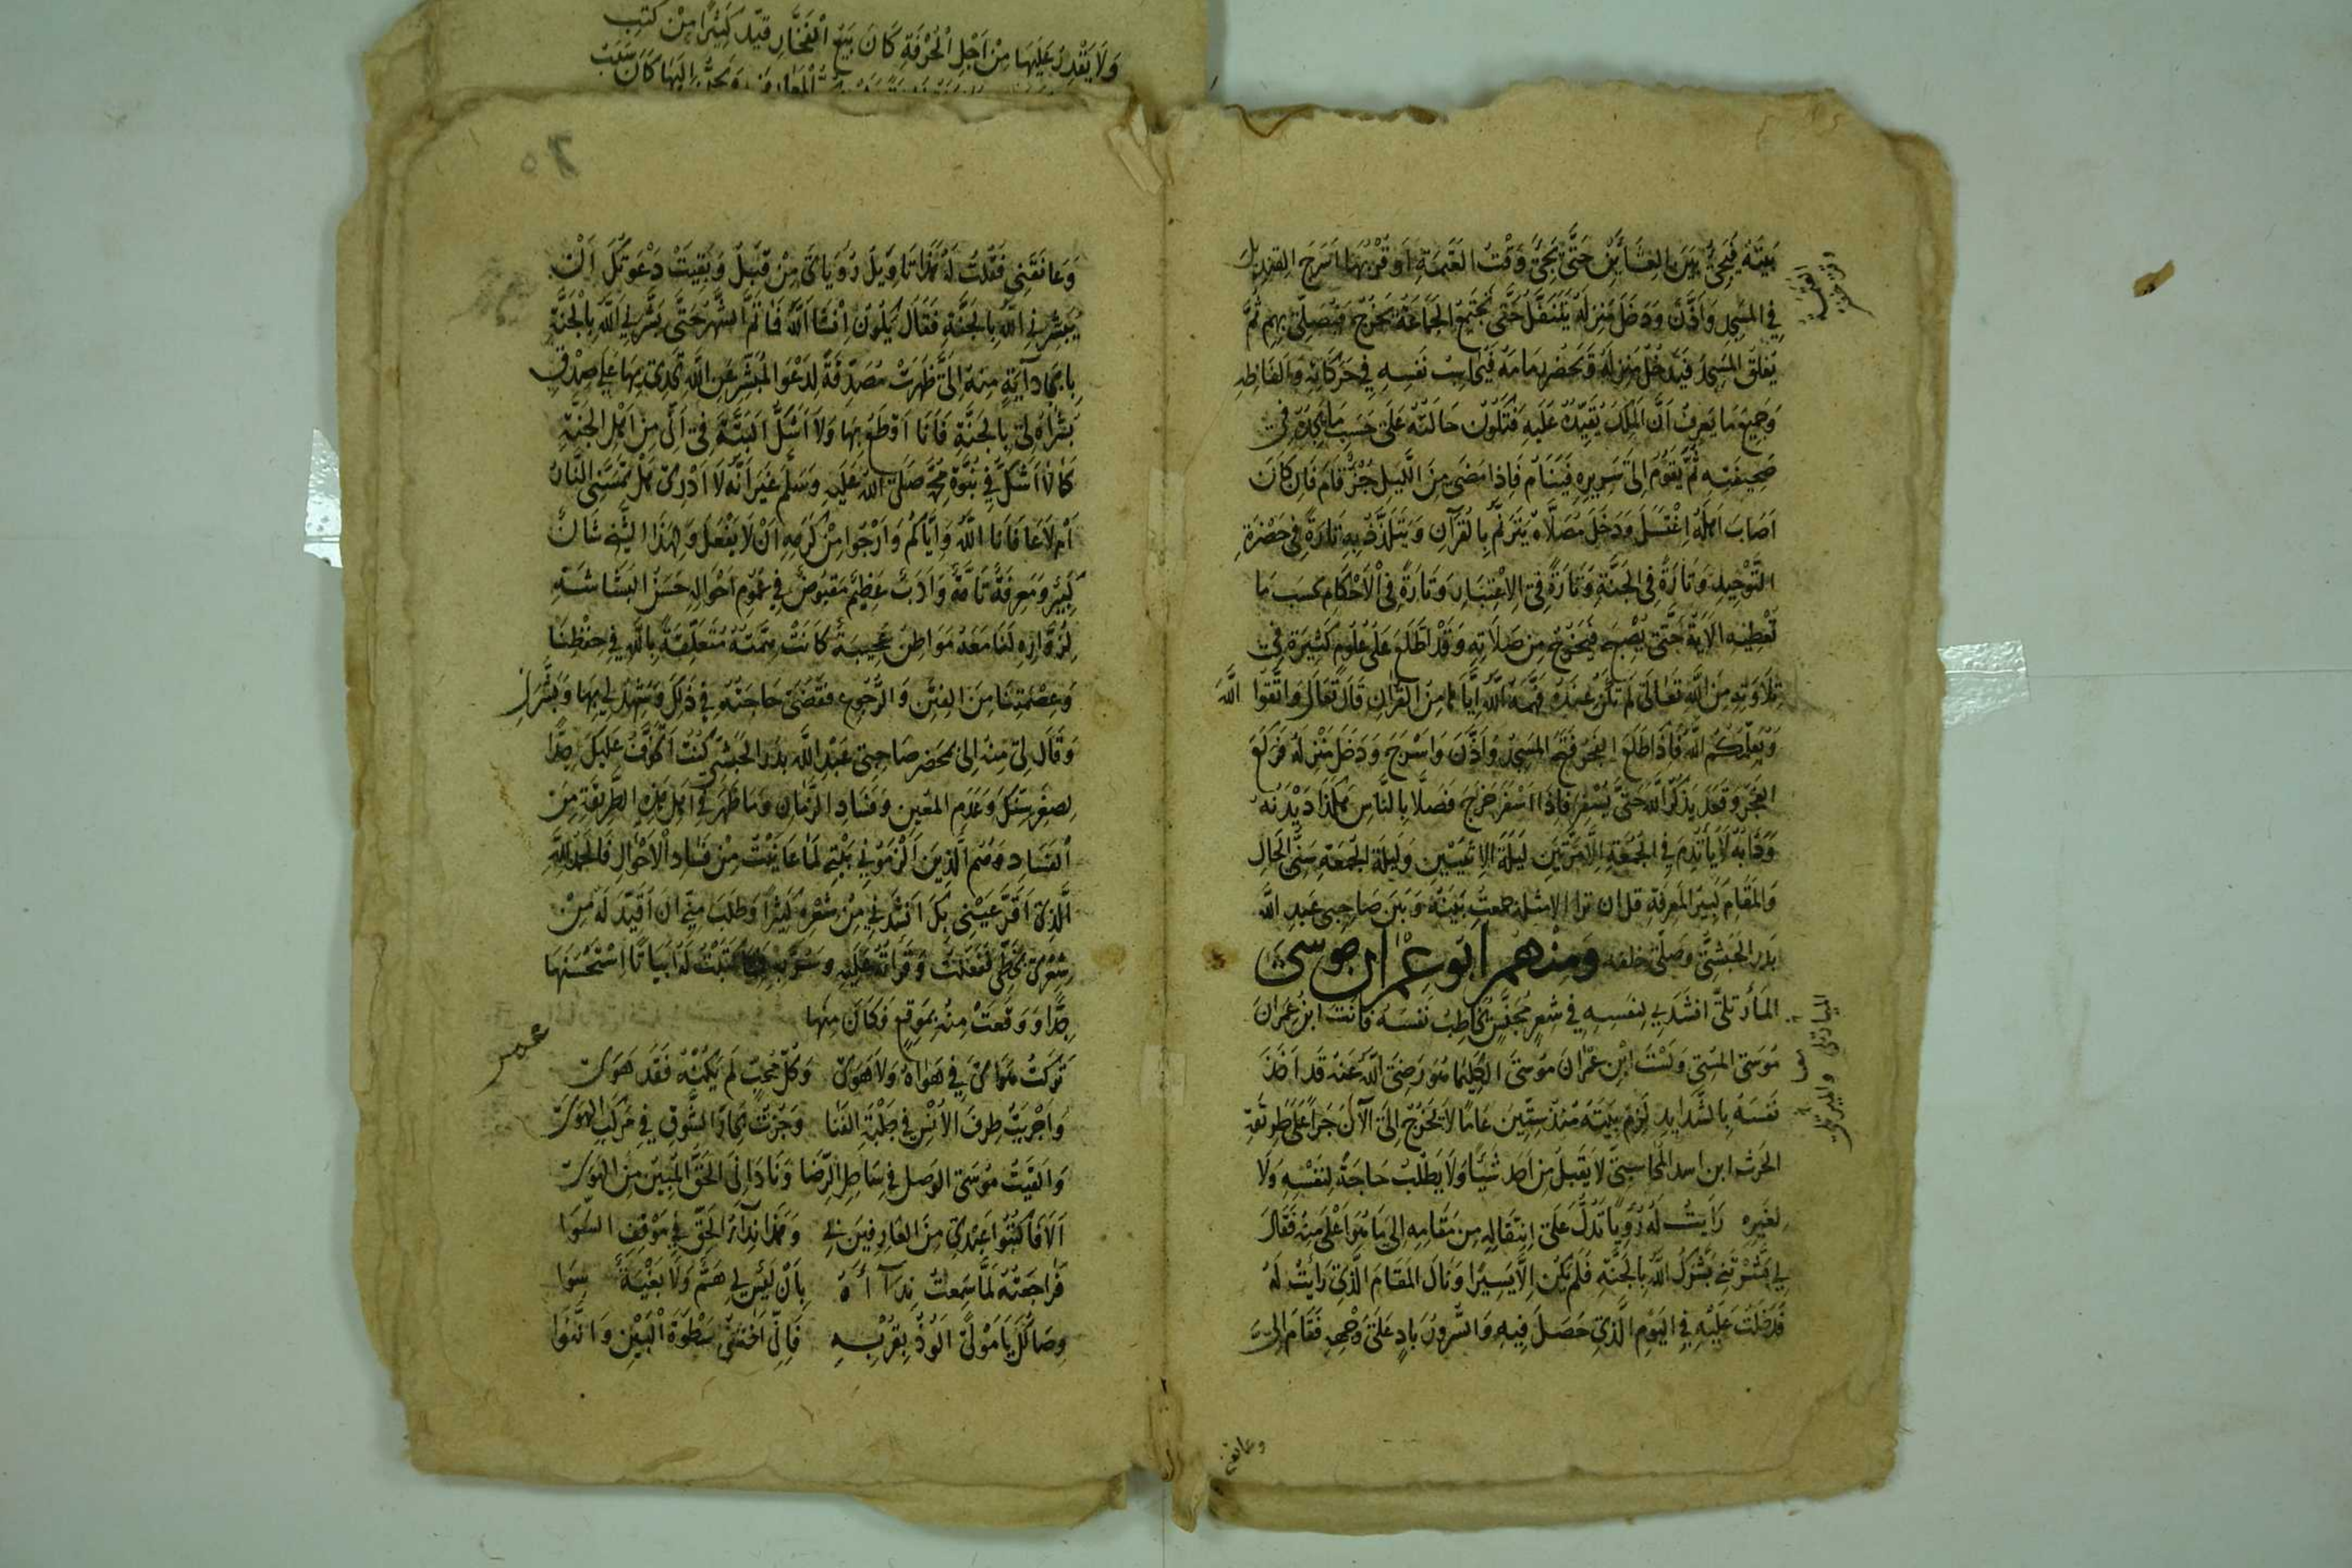 ولا يقدر عليها من اجل الحرفة كان يبيع الفخار قيد كثيرا من كتب
بيته فيجيء بين العشائين حتى يجيء وقت العتمة او قربها اسرج القنديل
في المسجد واذن ودخل منزله يتنفل حتى تجتمع الجماعة يخرج فيصلي بهم ثم
يغلق المسجد فيدخل منزله ويحضر فيحاسب نفسه في حركاته والفاظه
وجميع ما يعرف ان الملك يقيده عليه فتكون حالته على حسب ما يجده في
صحيفته ثم يقوم الى سريره فينام فاذا مضى من الليل جزء قام فان كان
اصاب اهله اغتسل ودخل مصلاه يترنم بالقرآن ويتلذذ به تارة في حضرة
التوحيد وتارة في الجنة وتارة في الاعتبار وتارة في الاحكام بحسب ما
تعطيه الآية حتى يصبح فيخرج من صلاته وقد اطلع على علوم كثيرة في
تلاوته من الله تعالى لم تكن عنده فهمه الله اياها من القران قال تعالى واتقوا الله
ويعلمكم الله فاذا طلع الفجر فتح المسجد واذن واسرج ودخل منزله فركع
الفجر وقعد يذكر الله حتى يسفر فاذا اسفر خرج فصلا بالناس هكذا ديدنه
ودابه لا ياتدم في الجمعة الا مرتين ليلة الاثنين وليلة الجمعة سني الحال
والمقام كبير المعرفة قل ان ترا الا مثله جمعت بينه وبين صاحبي عبد الله
بدر الحبشي وصلى خلفه ومنهم ابو عمران موسى
المارتلي انشدني لنفسه في شعر مجنس يخاطب نفسه فانت ابن عمران
موسى المسي ولست ابن عمران موسى الكليما هو رضي الله عنه قد اخذ
نفسه بالشدايد لزم بيته منذ ستين عاما لا يخرج الى الآن جرا على طريقة
الحرث ابن اسد المحاسبي لا يقبل من احد شيئا ولا يطلب حاجة لنفسه ولا
لغيره رايت له رؤيا تدل على انتقاله من مقامه الى ما هو اعلى منه فقال
لي بشرتني بشرك الله بالجنة فلم يكن الا يسيرا ونال المقام الذي رايت له
فدخلت عليه في اليوم الذي حصل فيه والسرور باد على وجهه فقام الي
وعانقني
وعانقني فقلت له هذا تاويل رؤياي من قبل وبقيت دعوتك ان
يبشرني الله بالجنة فقال يكون ان شا الله فا تم الشهر حتى بشرني الله بالجنة
بايجاد آية منه الي ظهرت مصدقة لدعوا المبشر عن الله تحدي بها على صدق
بشراه لي بالجنة فانا اقطع بها ولا اشك البتة في اني من اهل الجنة
كما لا اشك في نبوة محمد صلى الله عليه وسلم غير انه لا ادري هل تمسني النار
ام لا عافانا الله واياكم وارجوا من كرمه ان لا يفعل ولهذا الشيخ شان
كبير ومعرفة تامة وادب عظيم مقبوض في عموم احواله حسن البشاشة
لزواره لنا معه مواطن عجيبة كانت همته متعلقة بالله في حفظنا
وعصمتنا من الفتن والرجوع فقضى حاجته في ذلك وشهد لي بها وبشرني
وقال لي منه الى محضر صاحبي عبد الله بدر الحبشي كنت اخوف عليك جدا
لصغر سنك وعدم المعين وفساد الزمان وما ظهر في اهل هذه الطريقة من
الفساد وهم الذين الزموني بيتي لما عاينت من فساد الاحوال فالحمد لله
الذي اقر عيني بك انشدني من شعره كثيرا وطلب مني ان اقيد له من
شعري بخطي ففعلت وقراته عليه وسر به كتبت له ابياتا استحسنها
جدا ووقعت منه بموقع فكان منها
تركت هوائي في هواه ولا هوى وكل محب لم يكنه فقد هوى
واجريت طرف الانس في حلبة الفنا وجزت بحار الشوق في مركب الهوى
والقيت موسى الوصل في شاطئ الرضا ونادانى الحق المبين من الهوى
الا فاكتبوا عبدي من العارفين لي وهذا نداء الحق في موقف السوا
فراجعته لما سمعت نداءه بان ليس لي هم ولا بغية سوا
وصالك يا مولى الوذ بقربه فاني اخشى سطوة البين والنوا